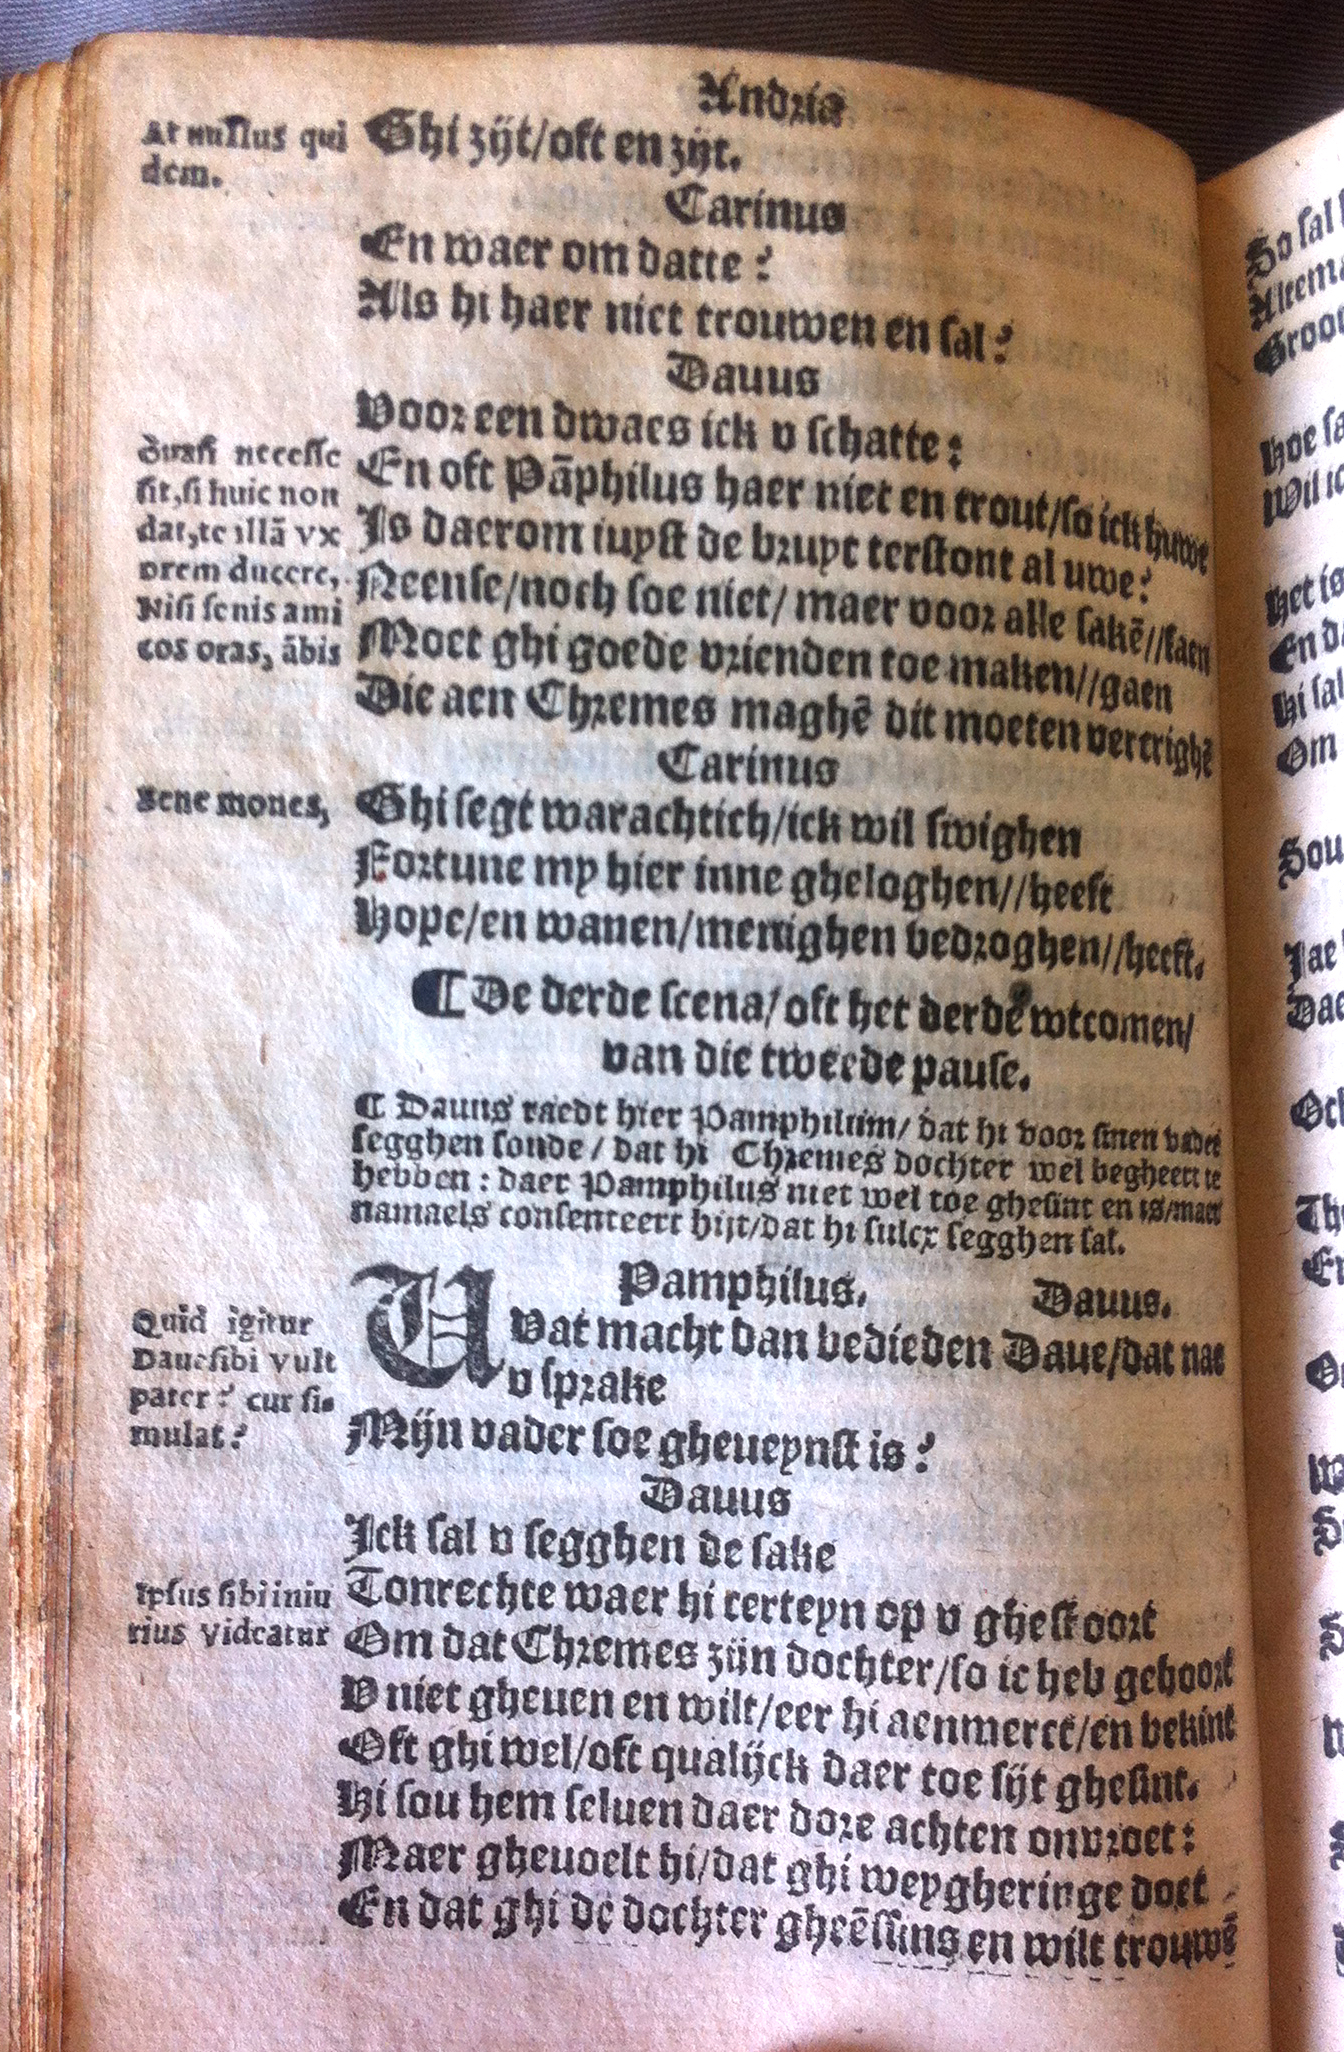 Andria
At nullus qui
dem.
Ghi zijt/oft en zijt.
Carinus
En waer om datte?
Als hi haer niet trouwen en sal?
Dauus
Voor een dwaes ick v schatte:
Quasi necesse
sit, si huic non
dat, te illā vx
orem ducere,
Nisi senis ami
cos oras, ābis
En oft Pāphilus haer niet en trout/so ick huwe
Is daerom iuyst de bruyt terstont al uwe?
Neense/noch soe niet/maer voor alle sakē//saen
Moet ghi goede vrienden toe maken//gaen
Die aen Chremes maghē dit moeten vercrighē
Carinus
Bene mones,
Ghi segt warachtich/ick wil swighen
Fortune my hier inne gheloghen//heeft
Hope/en wanen/menighen bedroghen//heeft.
¶ De derde scena/oft het derde wtcomen/
van die tweede pause.
¶ Dauus raedt hier Pamphilum/dat hi voor sinen vader
segghen soude/dat hi Chremes dochter wel begheert te
hebben: daer Pamphilus niet wel toe ghesint en is/maer
namaels consenteert hijt/dat hi sulcx segghen sal.
Pamphilus. Dauus.
Quid igitur
Daue sibi vult
pater? cur si-
mulat?
VVat macht dan bedieden Daue/dat nae
v sprake
Mijn vader soe gheueynst is?
Dauus
Ick sal v segghen de sake
Ipsus sibi iniu
rius videatur
Tonrechte waer hi certeyn op v ghestoort
Om dat Chremes zijn dochter/so ic heb gehoort
V niet gheuen en wilt/eer hi aenmerct/en bekint
Oft ghi wel/oft qualijck daer toe sijt ghesint.
Hi sou hem seluen daer dore achten onvroet:
Maer gheuoelt hi/dat ghi weygheringe doet
En dat ghi de dochter gheēssins en wilt trouwē